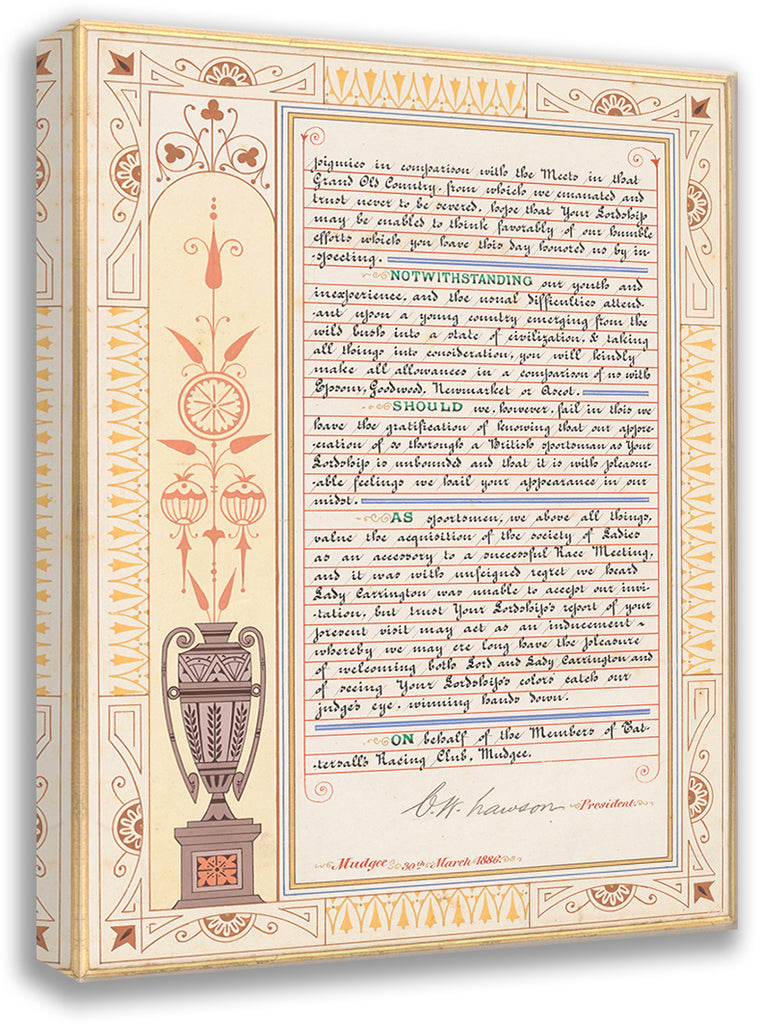 pigmies in comparison with the Meets in that
Grand Old Country, from which we emanated and
trust never to be severed, hope that Your Lordship
may be enabled to think favorably of our humble
efforts which you have this day honored us by in-
-specting.
NOTWITHSTANDING our youth and
inexperience, and the usual difficulties attend-
-ant upon a young country emerging from the
wild bush into a state of civilization, & taking
all things into consideration, you will kindly
make all allowances in a comparison of us with
Epsom, Goodwood, Newmarket or Ascot.
SHOULD we, however, fail in this, we
have the gratification of knowing that our appre-
-ciation of so thorough a British sportsman as Your
Lordship is unbounded and that it is with pleasur-
-able feelings we hail your appearance in our
midst.
AS sportsmen, we above all things,
value the acquisition of the society of Ladies
as an accessory to a successful Race Meeting,
and it was with unfeigned regret we heard
Lady Carrington was unable to accept our invi-
-tation, but trust Your Lordship's report of your
present visit may act as an inducement ~
whereby we may ere long have the pleasure
of welcoming both Lord and Lady Carrington and
of seeing Your Lordship's colors catch our
judge's eye, winning hands down.
ON behalf of the Members of Tat-
-tersall's Racing Club, Mudgee.
C. W. Lawson President.
Mudgee 30th March 1886.